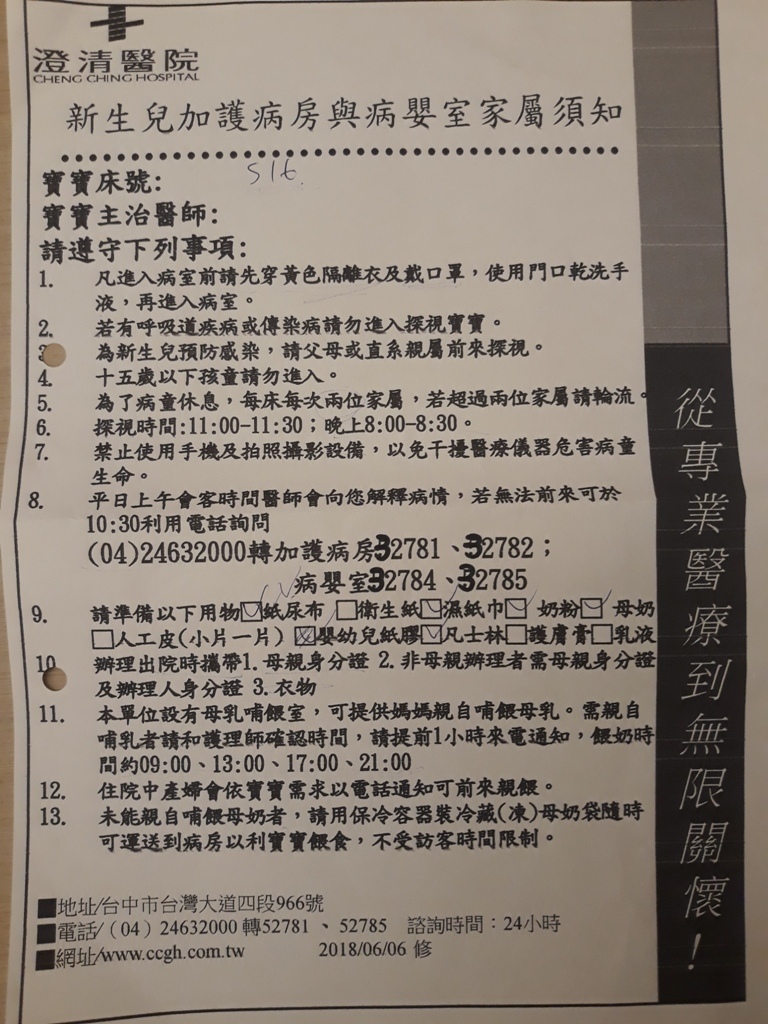 澄清醫院
CHENG CHING HOSPITAL
新生兒加護病房與病嬰室家屬須知
寶寶床號: S16
寶寶主治醫師:
請遵守下列事項:
1. 凡進入病室前請先穿黃色隔離衣及戴口罩，使用門口乾洗手
液，再進入病室。
2. 若有呼吸道疾病或傳染病請勿進入探視寶寶。
3. 為新生兒預防感染，請父母或直系親屬前來探視。
4. 十五歲以下孩童請勿進入。
5. 為了病童休息，每床每次兩位家屬，若超過兩位家屬請輪流。
6. 探視時間:11:00-11:30；晚上8:00-8:30。
7. 禁止使用手機及拍照攝影設備，以免干擾醫療儀器危害病童
生命。
8. 平日上午會客時間醫師會向您解釋病情，若無法前來可於
10:30利用電話詢問
(04)24632000轉加護病房32781、32782；
病嬰室32784、32785
9. 請準備以下用物☑紙尿布 □衛生紙☑濕紙巾☑ 奶粉☑ 母奶
□人工皮(小片一片) ☒嬰幼兒紙膠☑凡士林□護膚膏□乳液
10. 辦理出院時攜帶1.母親身分證 2.非母親辦理者需母親身分證
及辦理人身分證 3.衣物
11. 本單位設有母乳哺餵室，可提供媽媽親自哺餵母乳。需親自
哺乳者請和護理師確認時間，請提前1小時來電通知，餵奶時
間約09:00、13:00、17:00、21:00
12. 住院中產婦會依寶寶需求以電話通知可前來親餵。
13. 未能親自哺餵母奶者，請用保冷容器裝冷藏(凍)母奶袋隨時
可運送到病房以利寶寶餵食，不受訪客時間限制。
■地址/台中市台灣大道四段966號
■電話/（04）24632000 轉52781 、 52785 諮詢時間：24小時
■網址/www.ccgh.com.tw 2018/06/06 修
從專業醫療到無限關懷！